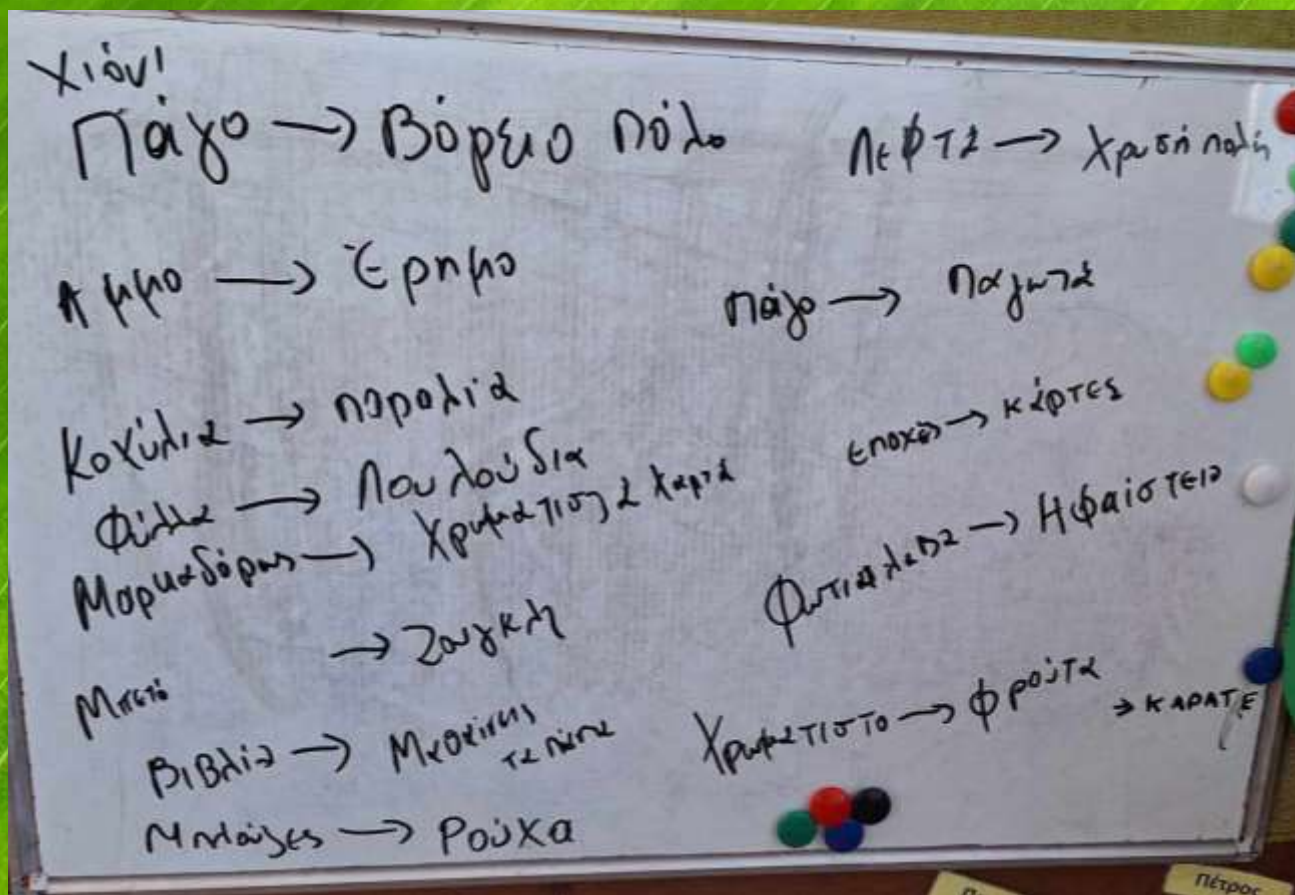 Χιόνι
Πάγο → Βόρειο Πόλο
Άμμο → Έρημο
Κοχύλια → παραλία
Φύλλα → Λουλούδια
Μαρκαδόρους → Χρωματιστά χαρτιά
→ Ζούγκλη
Βιβλία → Μαθαίνεις
τα πάντα
Μπλούζες → Ρούχα
Λεφτά → Χρυσή πολη
πάγο → παγωτά
Εποχές → κάρτες
Φωτιά λαβα → Ηφαίστειο
Χρωματιστο → Φρούτα
→ ΚΑΡΑΤΕ
Πέτρος